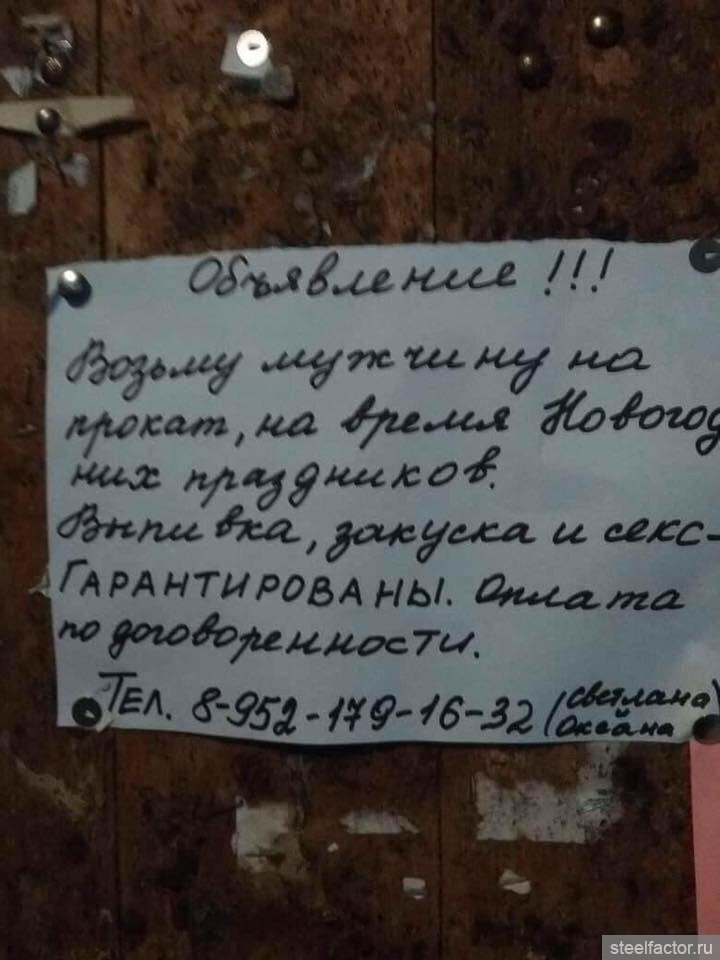 Объявление !!!
Возьму мужчину на
прокат, на время Новогод
них праздников.
Выпивка, закуска и секс-
ГАРАНТИРОВАНЫ. Оплата
по договоренности.
Тел. 8-952-179-16-32 (Светлана)
Оксана
steelfactor.ru